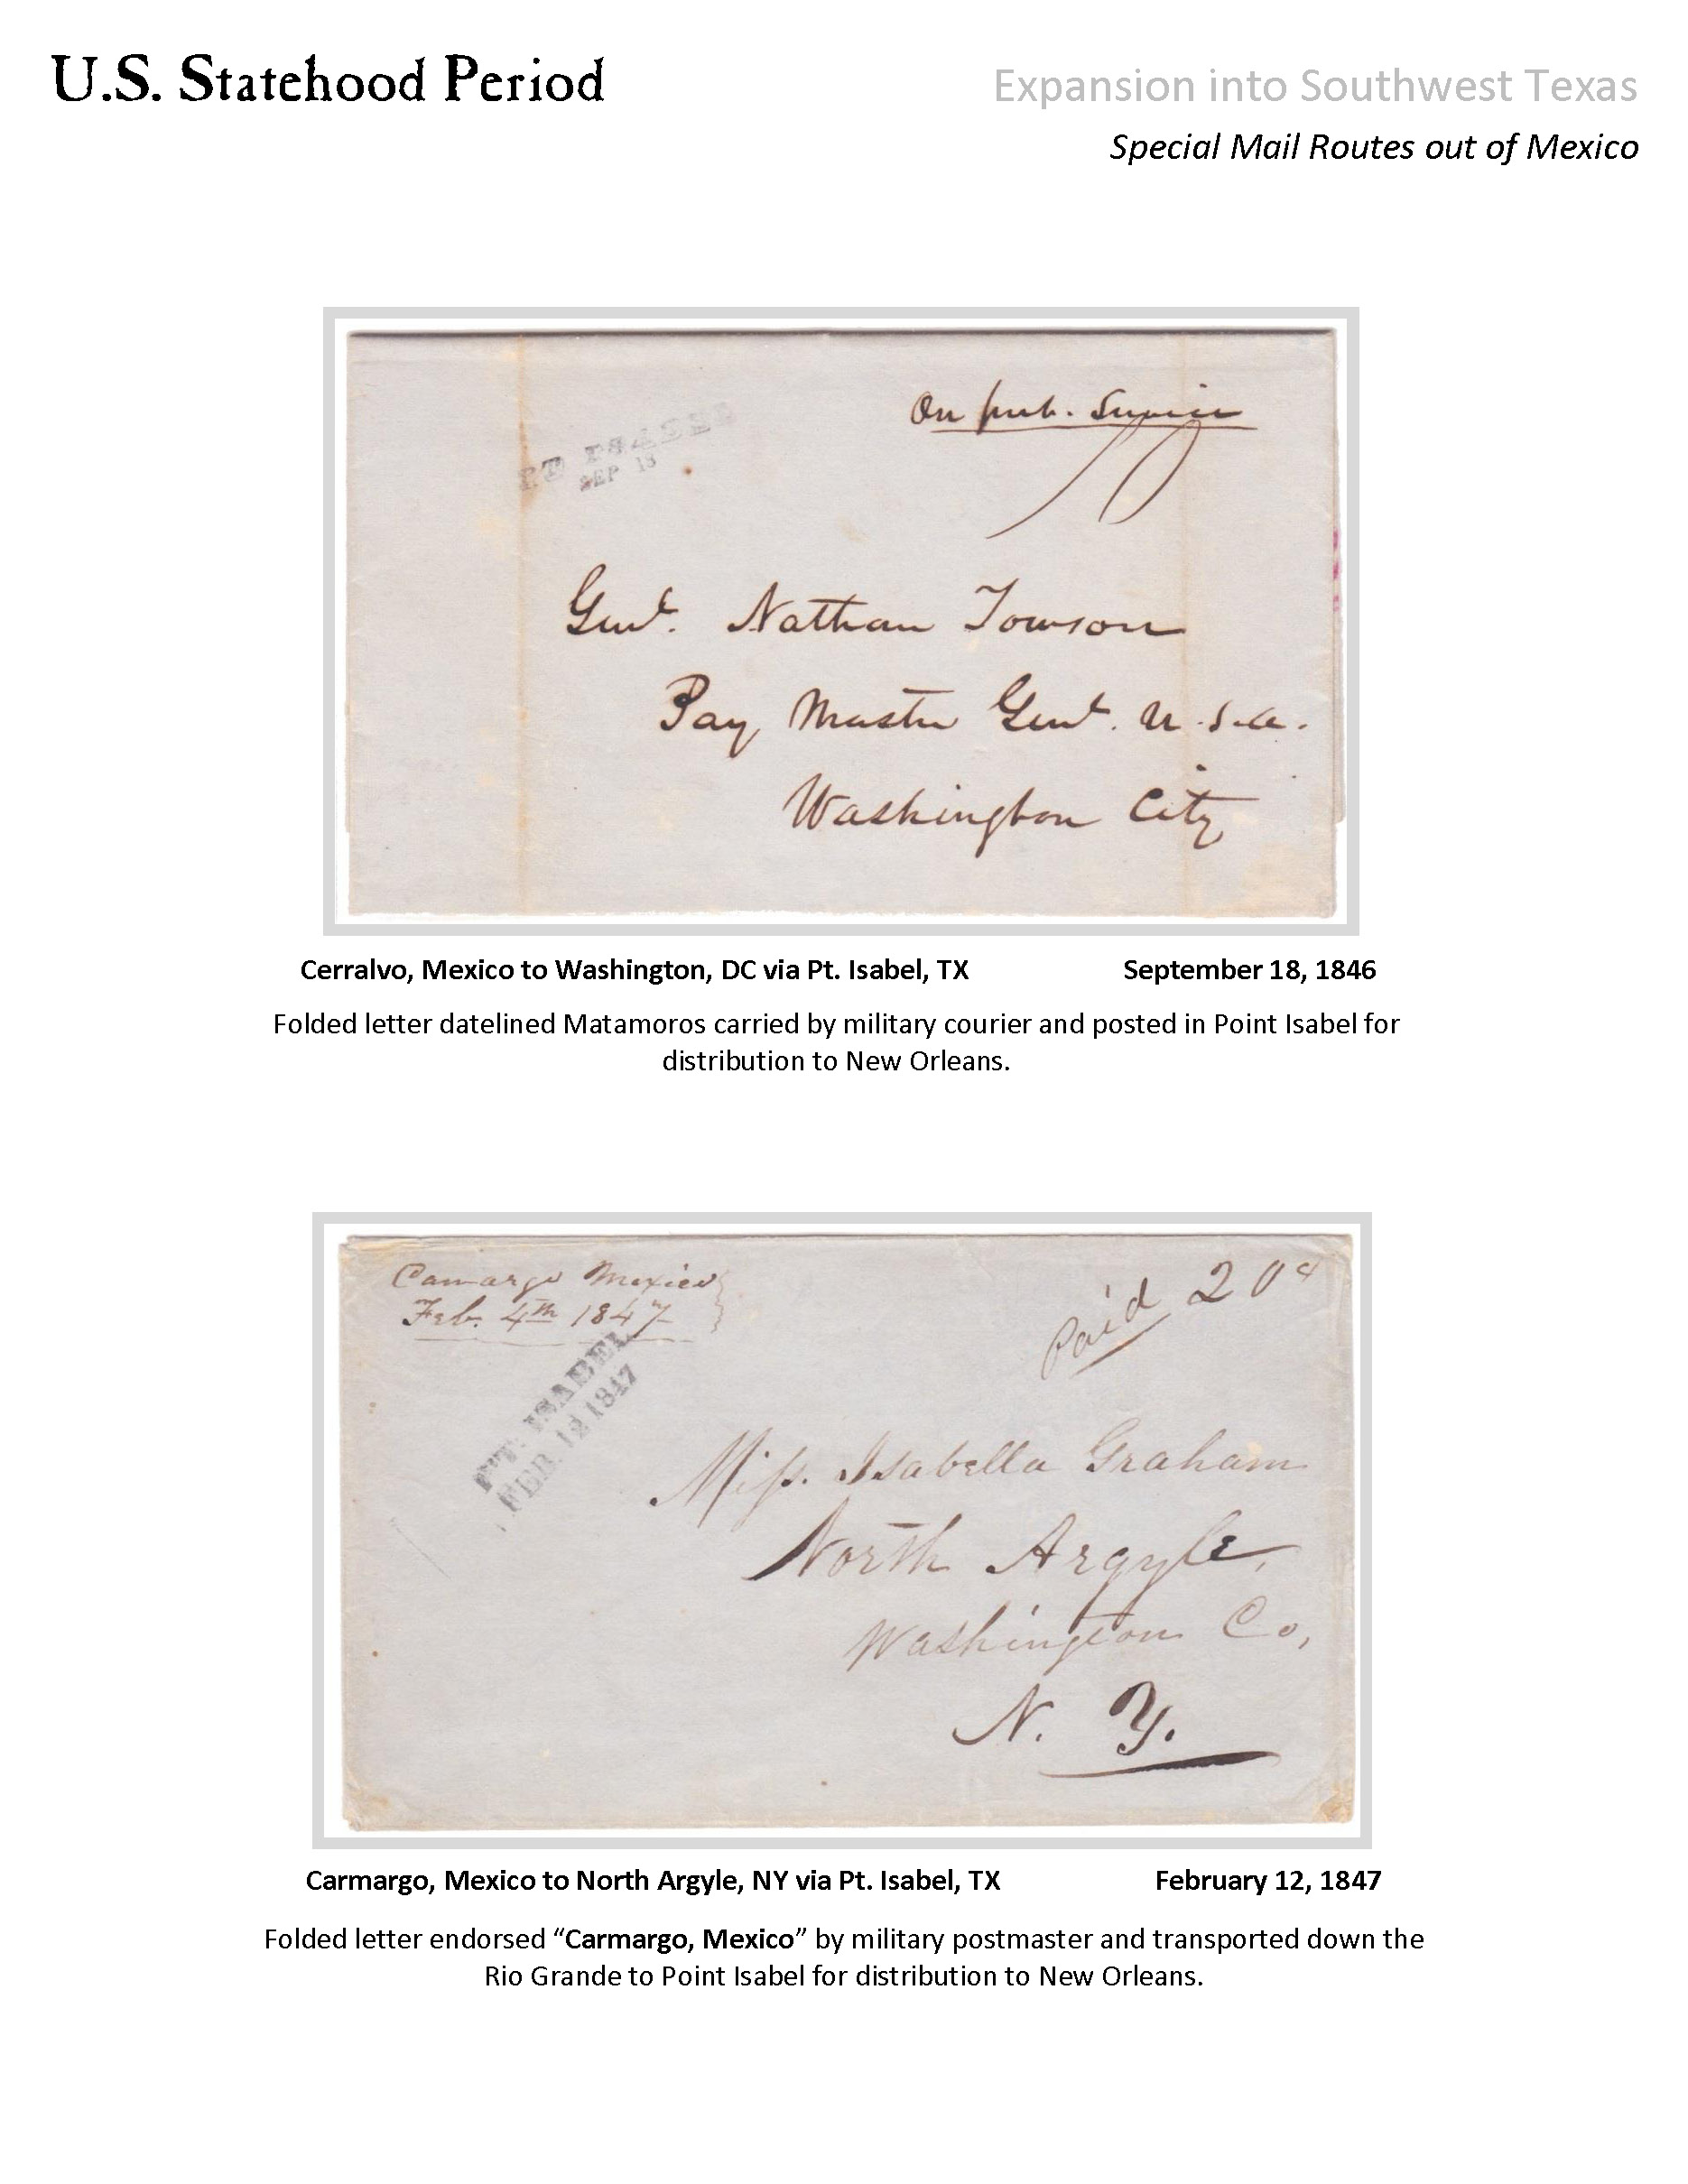 U.S. Statehood Period
Expansion into Southwest Texas
Special Mail Routes out of Mexico
On pub. Service
PT ISABEL
SEP 18
Genl. Nathan Towson
Pay Master Genl. U.S.A.
Washington City
Cerralvo, Mexico to Washington, DC via Pt. Isabel, TX September 18, 1846
Folded letter datelined Matamoros carried by military courier and posted in Point Isabel for
distribution to New Orleans.
Camargo Mexico
Feb. 4th 1847
Paid 20c
PT: ISABEL
FEB. 12 1847
Miss. Isabella Graham
North Argyle,
Washington Co,
N. Y.
Carmargo, Mexico to North Argyle, NY via Pt. Isabel, TX February 12, 1847
Folded letter endorsed “Carmargo, Mexico” by military postmaster and transported down the
Rio Grande to Point Isabel for distribution to New Orleans.